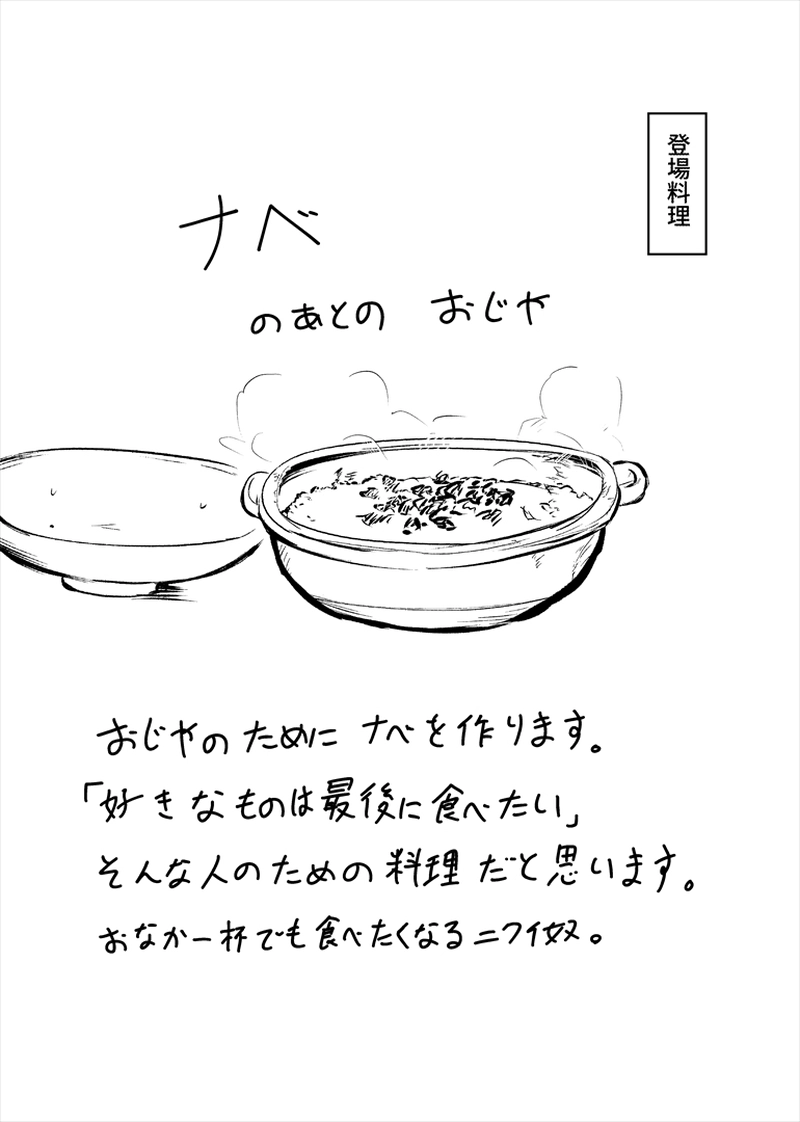 登場料理
ナベ
のあとの おじや
おじやのために ナベを作ります。
「好きなものは最後に食べたい」
そんな人のための料理だと思います。
おなか一杯でも食べたくなるニクイ奴。